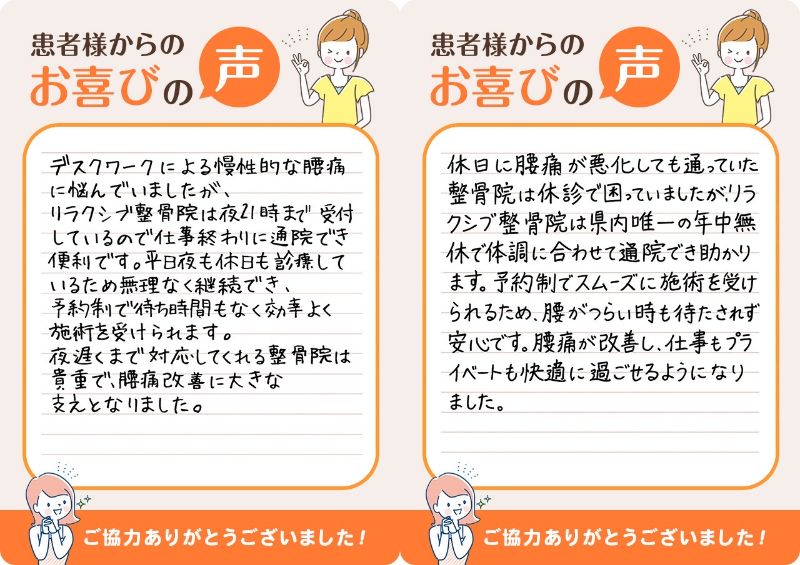 患者様からの
お喜びの
声
デスクワークによる慢性的な腰痛
に悩んでいましたが、
リラクシブ整骨院は夜21時まで受付
しているので仕事終わりに通院でき
便利です。平日夜も休日も診療して
いるため無理なく継続でき、
予約制で待ち時間もなく効率よく
施術を受けられます。
夜遅くまで対応してくれる整骨院は
貴重で、腰痛改善に大きな
支えとなりました。
ご協力ありがとうございました!
患者様からの
お喜びの
声
休日に腰痛が悪化しても通っていた
整骨院は休診で困っていましたが、リラ
クシブ整骨院は県内唯一の年中無
休で体調に合わせて通院でき助かり
ます。予約制でスムーズに施術を受け
られるため、腰がつらい時も待たされず
安心です。腰痛が改善し、仕事もプラ
イベートも快適に過ごせるようになり
ました。
ご協力ありがとうございました!